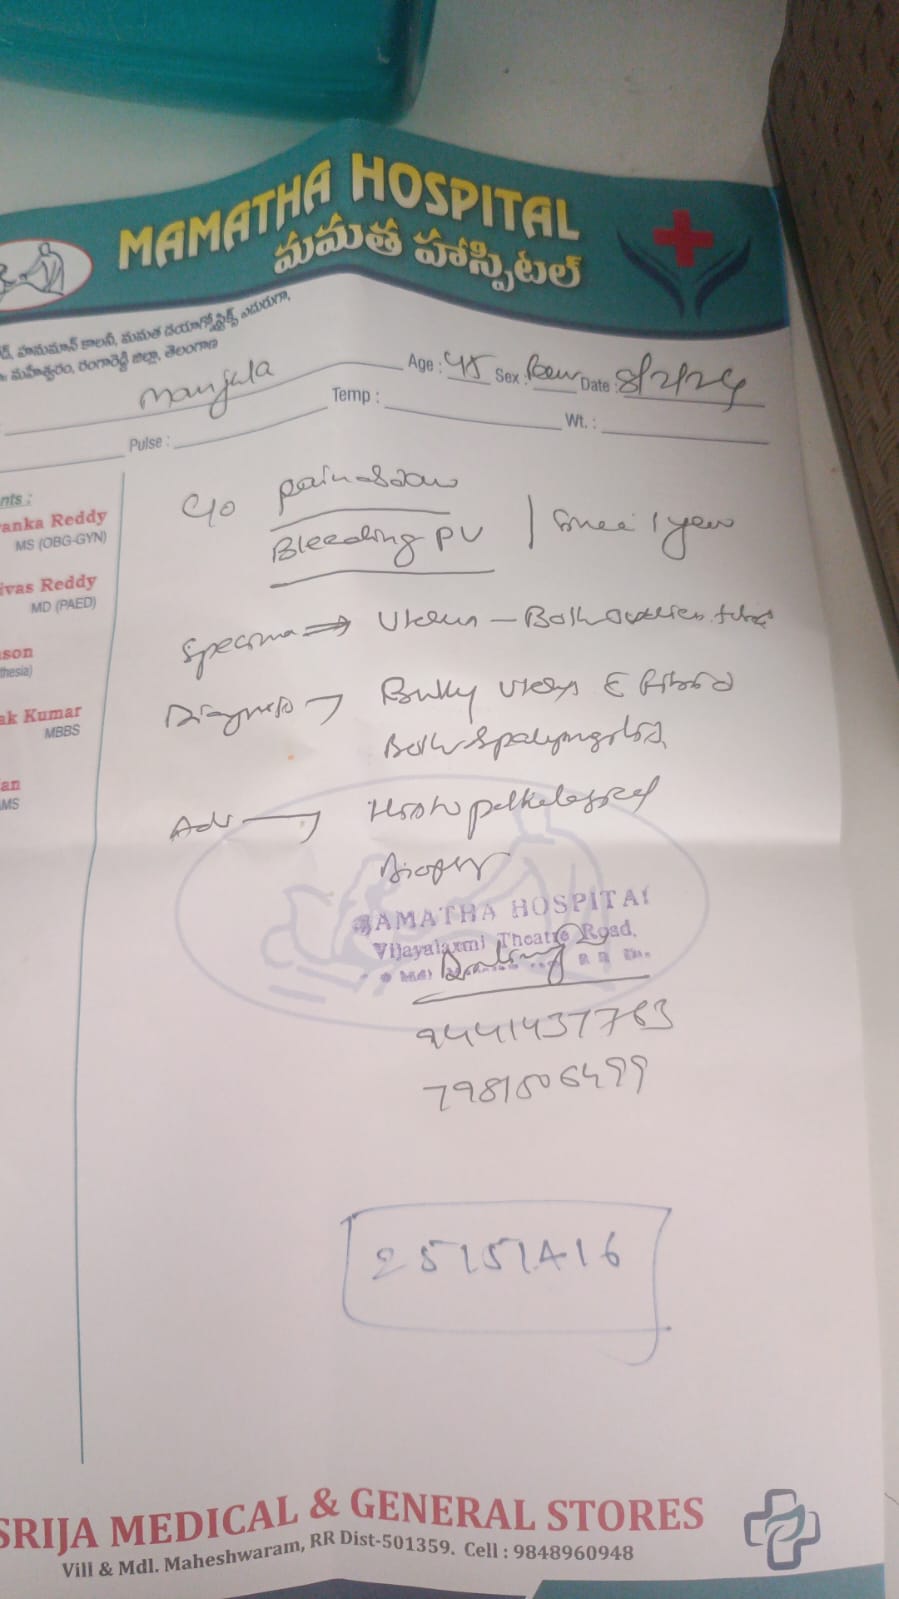 MAMATHA HOSPITAL
మమత హాస్పిటల్
హనుమాన్ కాలనీ, మమత డయాగ్నోస్టిక్స్ ఎదురుగా,
మహేశ్వరం, రంగారెడ్డి జిల్లా, తెలంగాణ
Manjula Age : 45 Sex : Date : 8/2/24
Pulse : Temp : Wt. :
nts :
anka Reddy
MS (OBG-GYN)
ivas Reddy
MD (PAED)
son
thesia)
ak Kumar
MBBS
an
MS
C/o pain
Bleeding PV | Since 1 year
Uterus - Both
Bulky Uterus
Both
Adv
Biopsy
AMATHA HOSPITAL
Vijayalaxmi Theatre Road,
9441437763
7981506499
25151416
SRIJA MEDICAL & GENERAL STORES
Vill & Mdl. Maheshwaram, RR Dist-501359. Cell : 9848960948